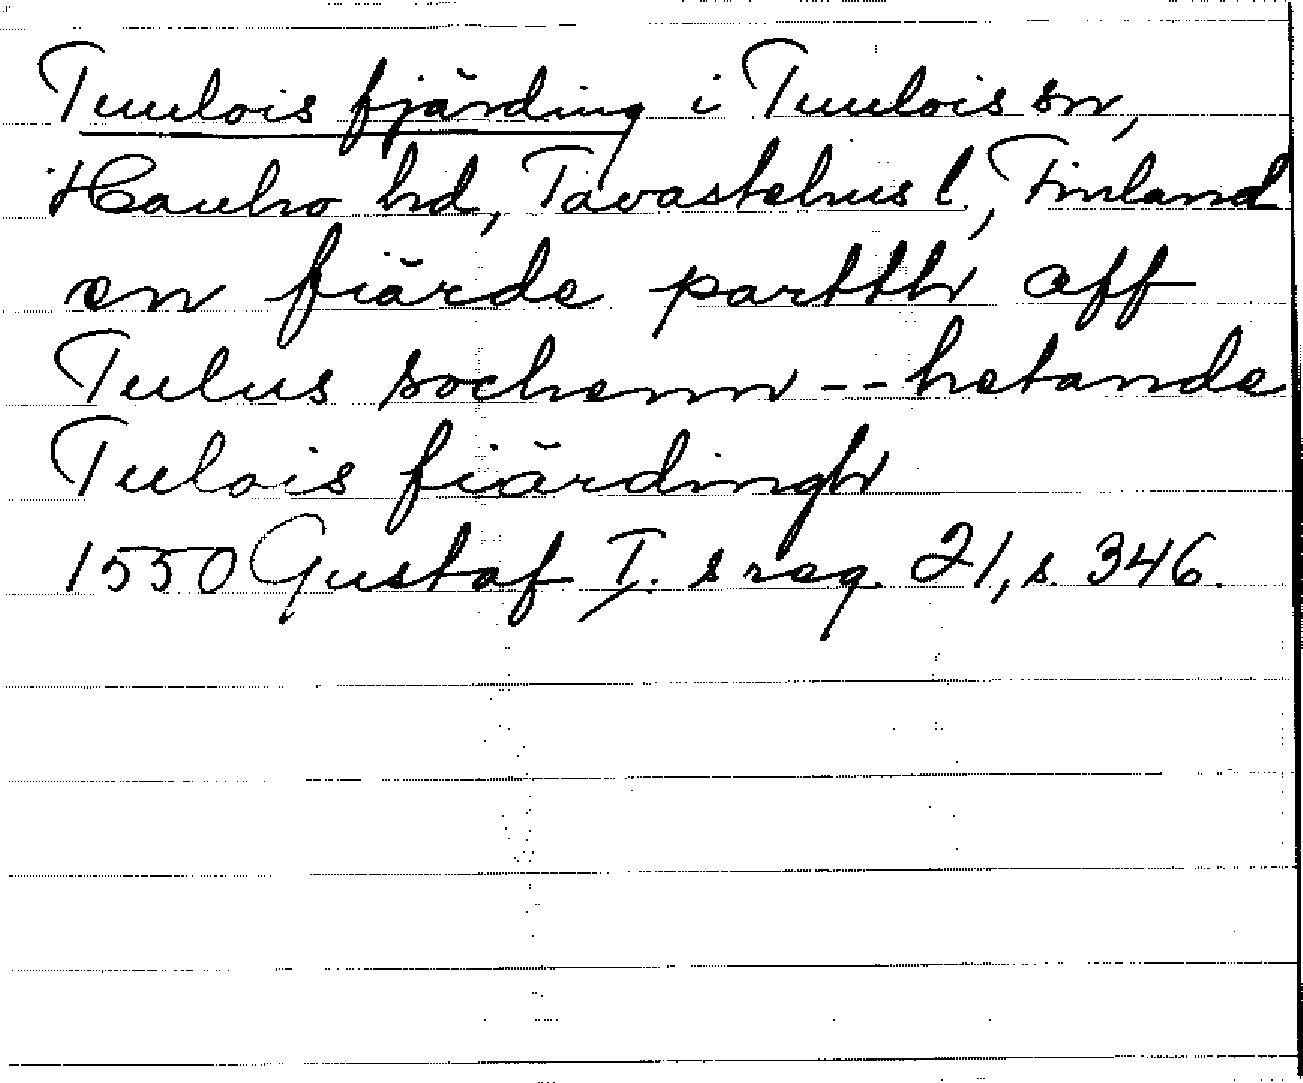 Tuulois fjärding i Tuulois sn,
Hauho hd, Tavastehus l., Finland
en fiärde partth aff
Tulus sochenn -- hetande
Tulois fiärdingh
1550 Gustaf I. s reg. 21, s. 346.